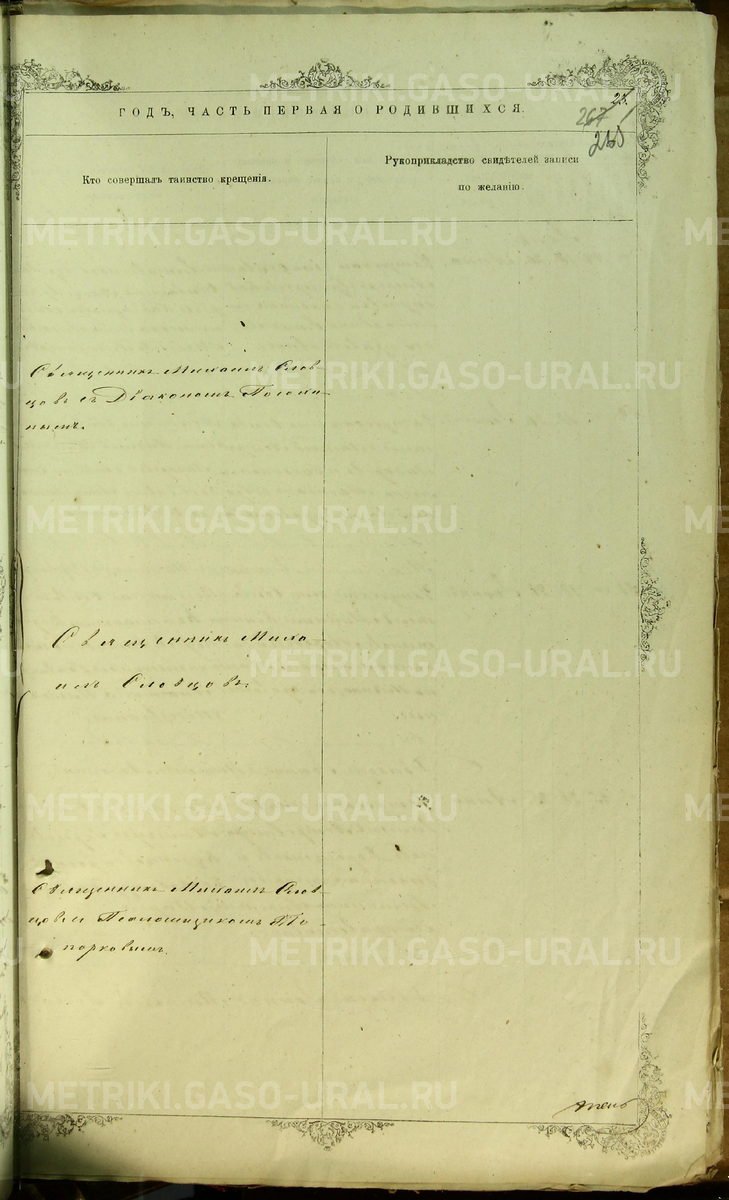 ГОДЪ, ЧАСТЬ ПЕРВАЯ О РОДИВШИХСЯ.
267
Кто совершалъ таинство крещенія.
Рукоприкладство свидѣтелей записи
по желанію.
Священникъ Михаилъ Слов-
цовъ съ Діакономъ
Священникъ Миха-
илъ Словцовъ.
Священникъ Михаилъ Слов-
цовъ съ Псаломщикомъ
METRIKI.GASO-URAL.RU